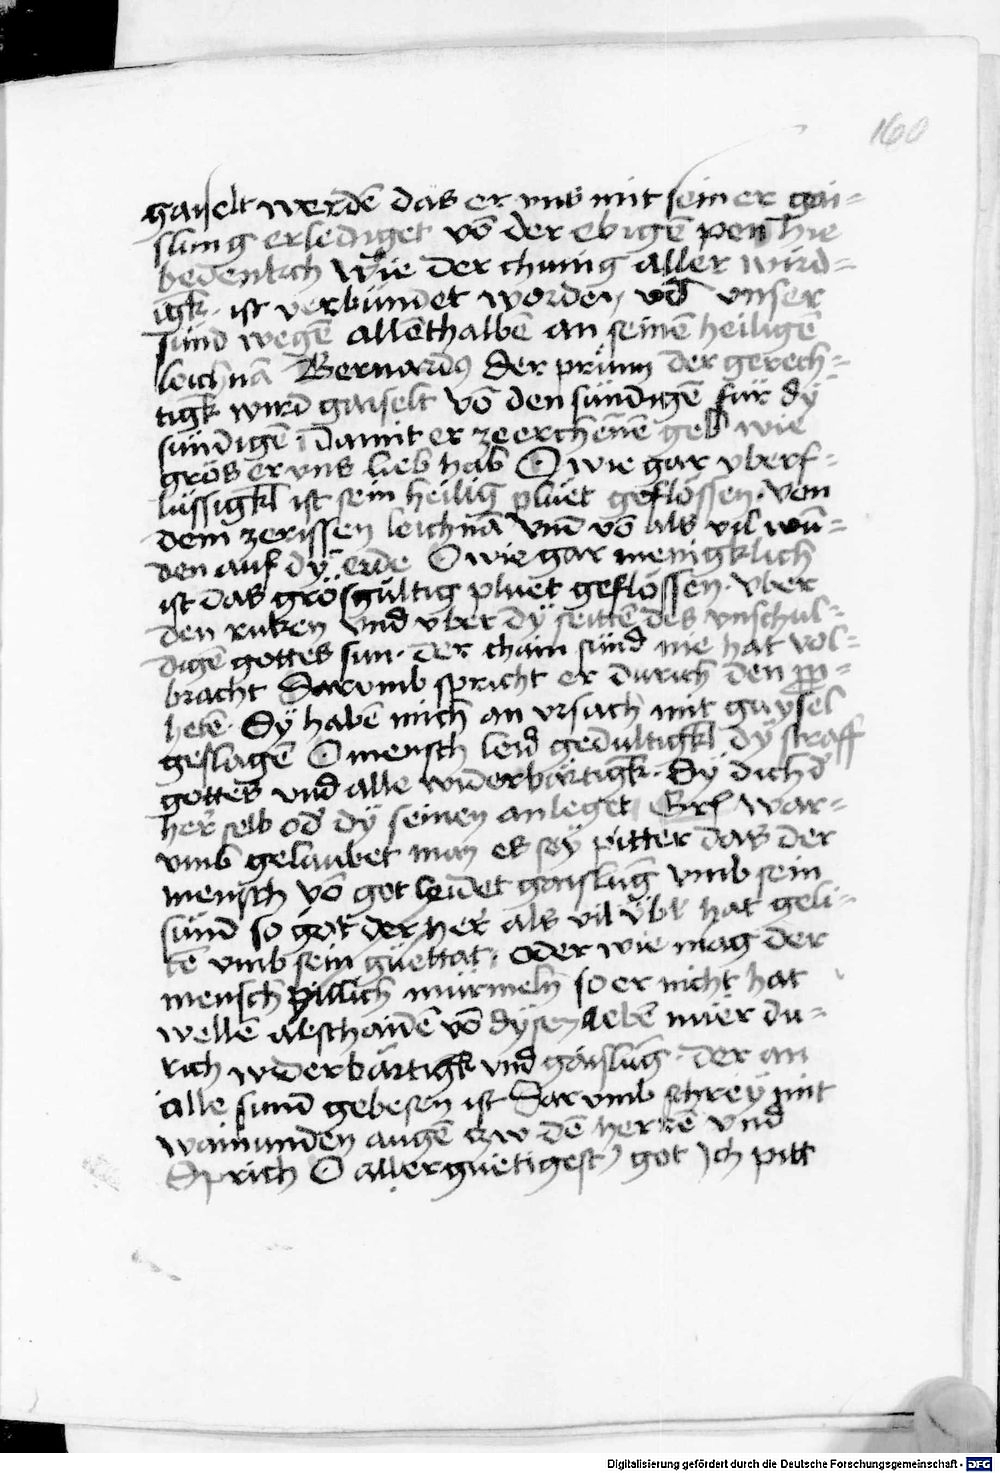 160
gaiselt werdē das er vns mit seiner gai=
slung erlediget vō der ebigē pen hie
bedenkch wie der chunig aller wird=
igk. ist verbundet worden, vō vnser
sünd wegē allenthalbē an seinē heiligē
leichnā Bernardꝰ der prünn der gerech=
tigk wird gaiselt vō den sündigē für dÿ
sündigē, damit er zeerchenē geb wie
grös er vns lieb hab O wie gar vberf=
lüssigkl ist sein heilig pluet geflossen. von
dem zerissen leichnā vnd vō als vil wū=
den auf dÿ erde O wie gar menigklich
ist das grösgültig pluet geflossen. vber
den ruken vnd vber dÿ seittē des vnschul=
digē gottes sun. der chain sünd nie hat vol=
bracht Darvmb spricht er durich den pp=
hetē. Sÿ habē mich an vrsach mit gaysel
geslagē O mensch leid gedultigkl dÿ straff
gottes vnd alle widerbärtigk. Dÿ dich d
her selb od dÿ seinen anleget war=
vmb gelaubet man es sey pitter das der
mensch vō got leidet gaislūg vmb sein
sünd so got der her als vil übl hat geli=
tē vmb sein güettat. oder wie mag der
mensch pillich mürmeln so er nicht hat
wellē abschaidē vō dÿsen lebē nuer du=
rich widerbärtigk vnd gaislūg. der an
alle sund gebesen ist Darvmb schrey mit
wainunden augē czw dē herrē vnd
Sprich O allerguetigest got Ich pitt
Digitalisierung gefördert durch die Deutsche Forschungsgemeinschaft - DFG